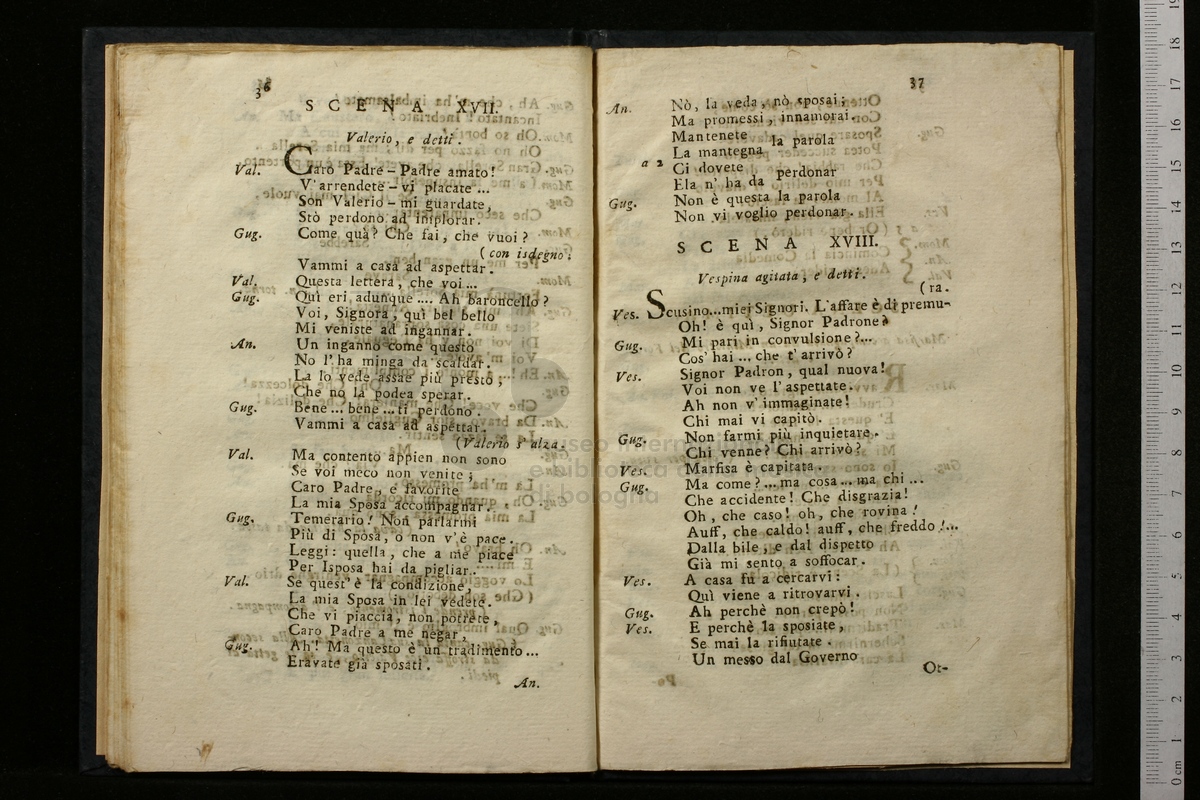 36
SCENA XVII.
Valerio, e detti.
Val. Caro Padre – Padre amato!
V'arrendete – vi placate ...
Son Valerio – mi guardate,
Stò perdono ad implorar.
Gug. Come quà? Che fai, che vuoi?
(con isdegno.
Vammi a casa ad aspettar.
Val. Questa lettera, che voi ...
Gug. Quì eri adunque .... Ah baroncello?
Voi, Signora, quì bel bello
Mi veniste ad ingannar.
An. Un inganno come questo
No l'ha minga da scaldar.
La lo vede assae più presto;
Che no la podea sperar.
Gug. Bene ... bene ... ti perdono.
Vammi a casa ad aspettar.
(Valerio s'alza.
Val. Ma contento appien non sono
Se voi meco non venite;
Caro Padre, e favorite
La mia Sposa accompagnar.
Gug. Temerario! Non parlarmi
Più di Sposa, o non v'è pace.
Leggi: quella, che a me piace
Per Isposa hai da pigliar.
Val. Se quest' è la condizione,
La mia Sposa in lei vedete.
Che vi piaccia, non potrete,
Caro Padre a me negar.
Gug. Ah! Ma questo è un tradimento ...
Eravate già sposati.
An.
37
An. Nò, la veda, nò sposai;
Ma promessi, innamorai.
Mantenete
la parola
La mantegna
a 2 Ci dovete
perdonar
Ela n' ha da
Gug. Non è questa la parola
Non vi voglio perdonar.
SCENA XVIII.
Vespina agitata, e detti.
(ra.
Ves. Scusino...miei Signori. L'affare è di premu-
Oh! è quì, Signor Padrone?
Gug. Mi pari in convulsione?...
Cos' hai ... che t'arrivò?
Ves. Signor Padron, qual nuova!
Voi non ve l'aspettate.
Ah non v'immaginate!
Chi mai vi capitò.
Gug. Non farmi più inquietare.
Chi venne? Chi arrivò?
Ves. Marfisa è capitata.
Gug. Ma come? ... ma cosa ... ma chi ...
Che accidente! Che disgrazia!
Oh, che caso! oh, che rovina!
Auff, che caldo! auff, che freddo!...
Dalla bile, e dal dispetto
Già mi sento a soffocar.
Ves. A casa fu a cercarvi:
Quì viene a ritrovarvi.
Gug. Ah perchè non crepò!
Ves. E perchè la sposiate,
Se mai la rifiutate.
Un messo dal Governo
Ot-